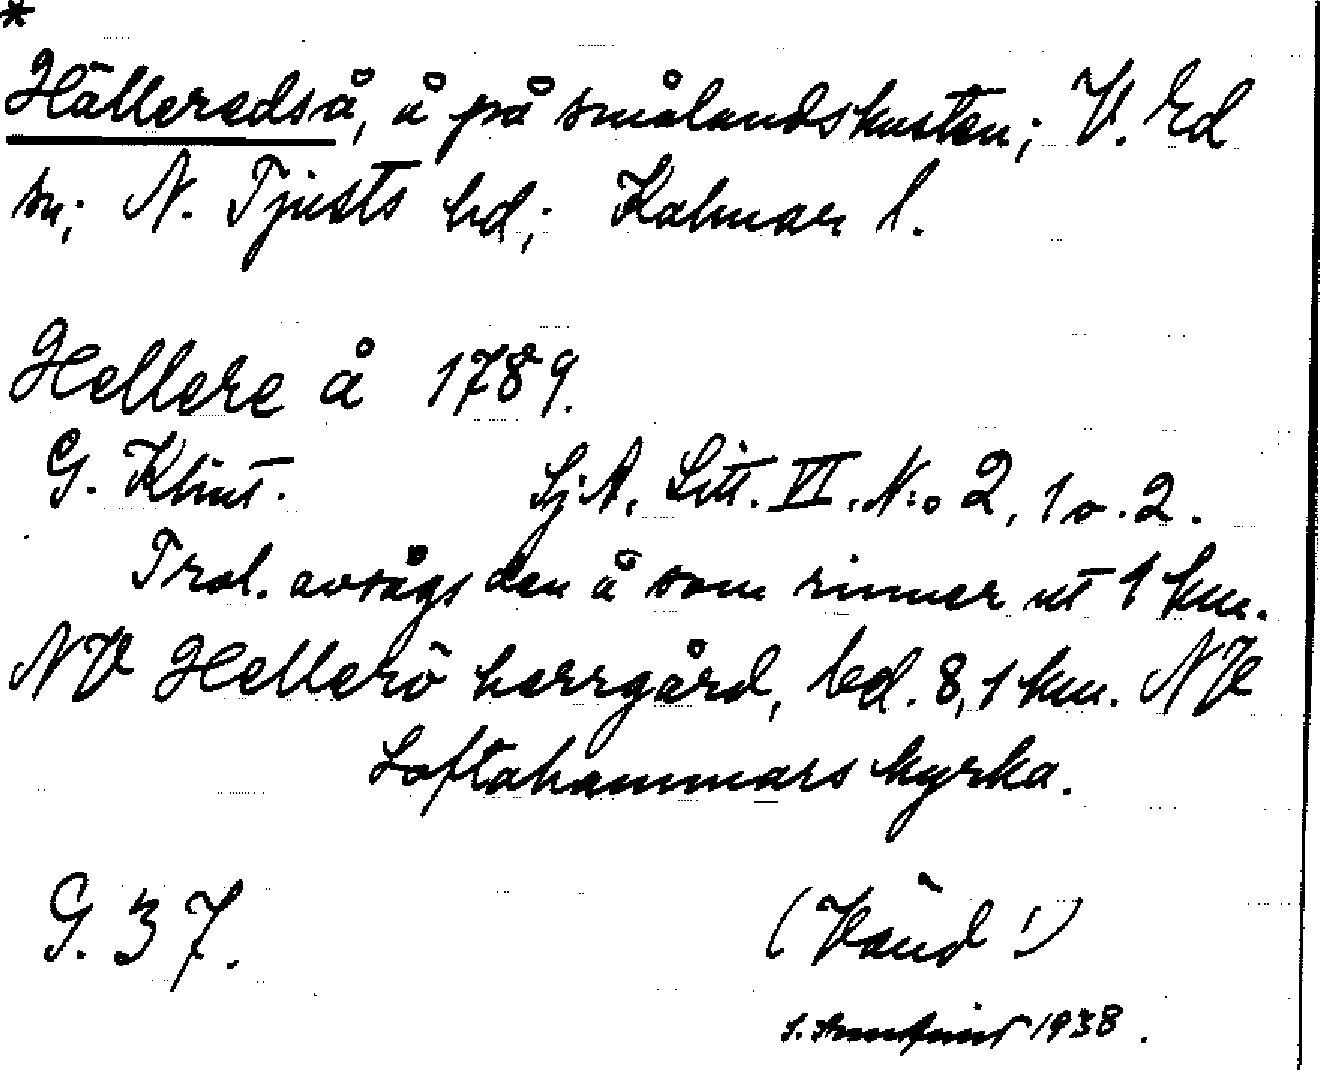 *
Hälleredså, å på smålandskusten; V. Ed
sn; N. Tjusts hd; Kalmar l.
Hellere å 1789.
G. Klint. Sj.A. Litt. VI. N:o 2, 1 o. 2.
Trol. avsågs den å som rinner ut 1 km.
NV Hellerö herrgård, bel. 8,1 km. NV
Loftahammars kyrka.
G. 37. (Vänd!)
1938.